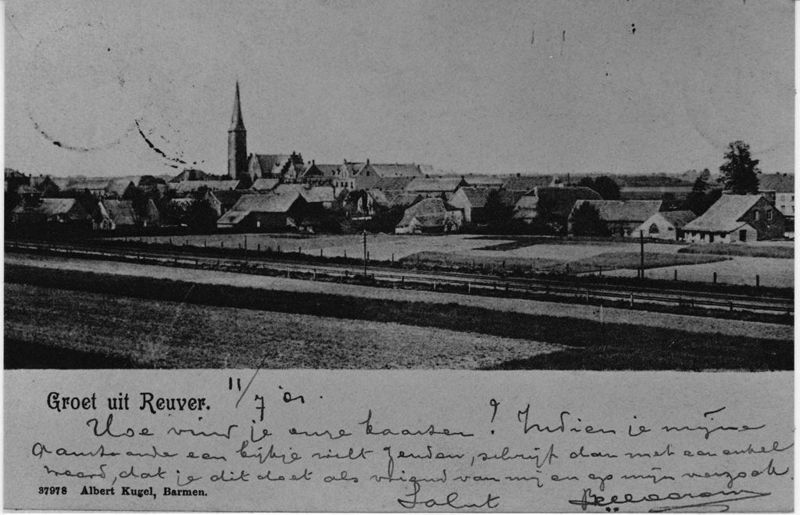 Groet uit Reuver.
11/7 01.
Hoe vind je onze kaarten? Indien je mijne
aanstaande een kijkje wilt zenden, schrijf dan met een enkel
woord, dat je dit doet als vriend van mij en op mijn verzoek.
37978 Albert Kugel, Barmen.
Salut